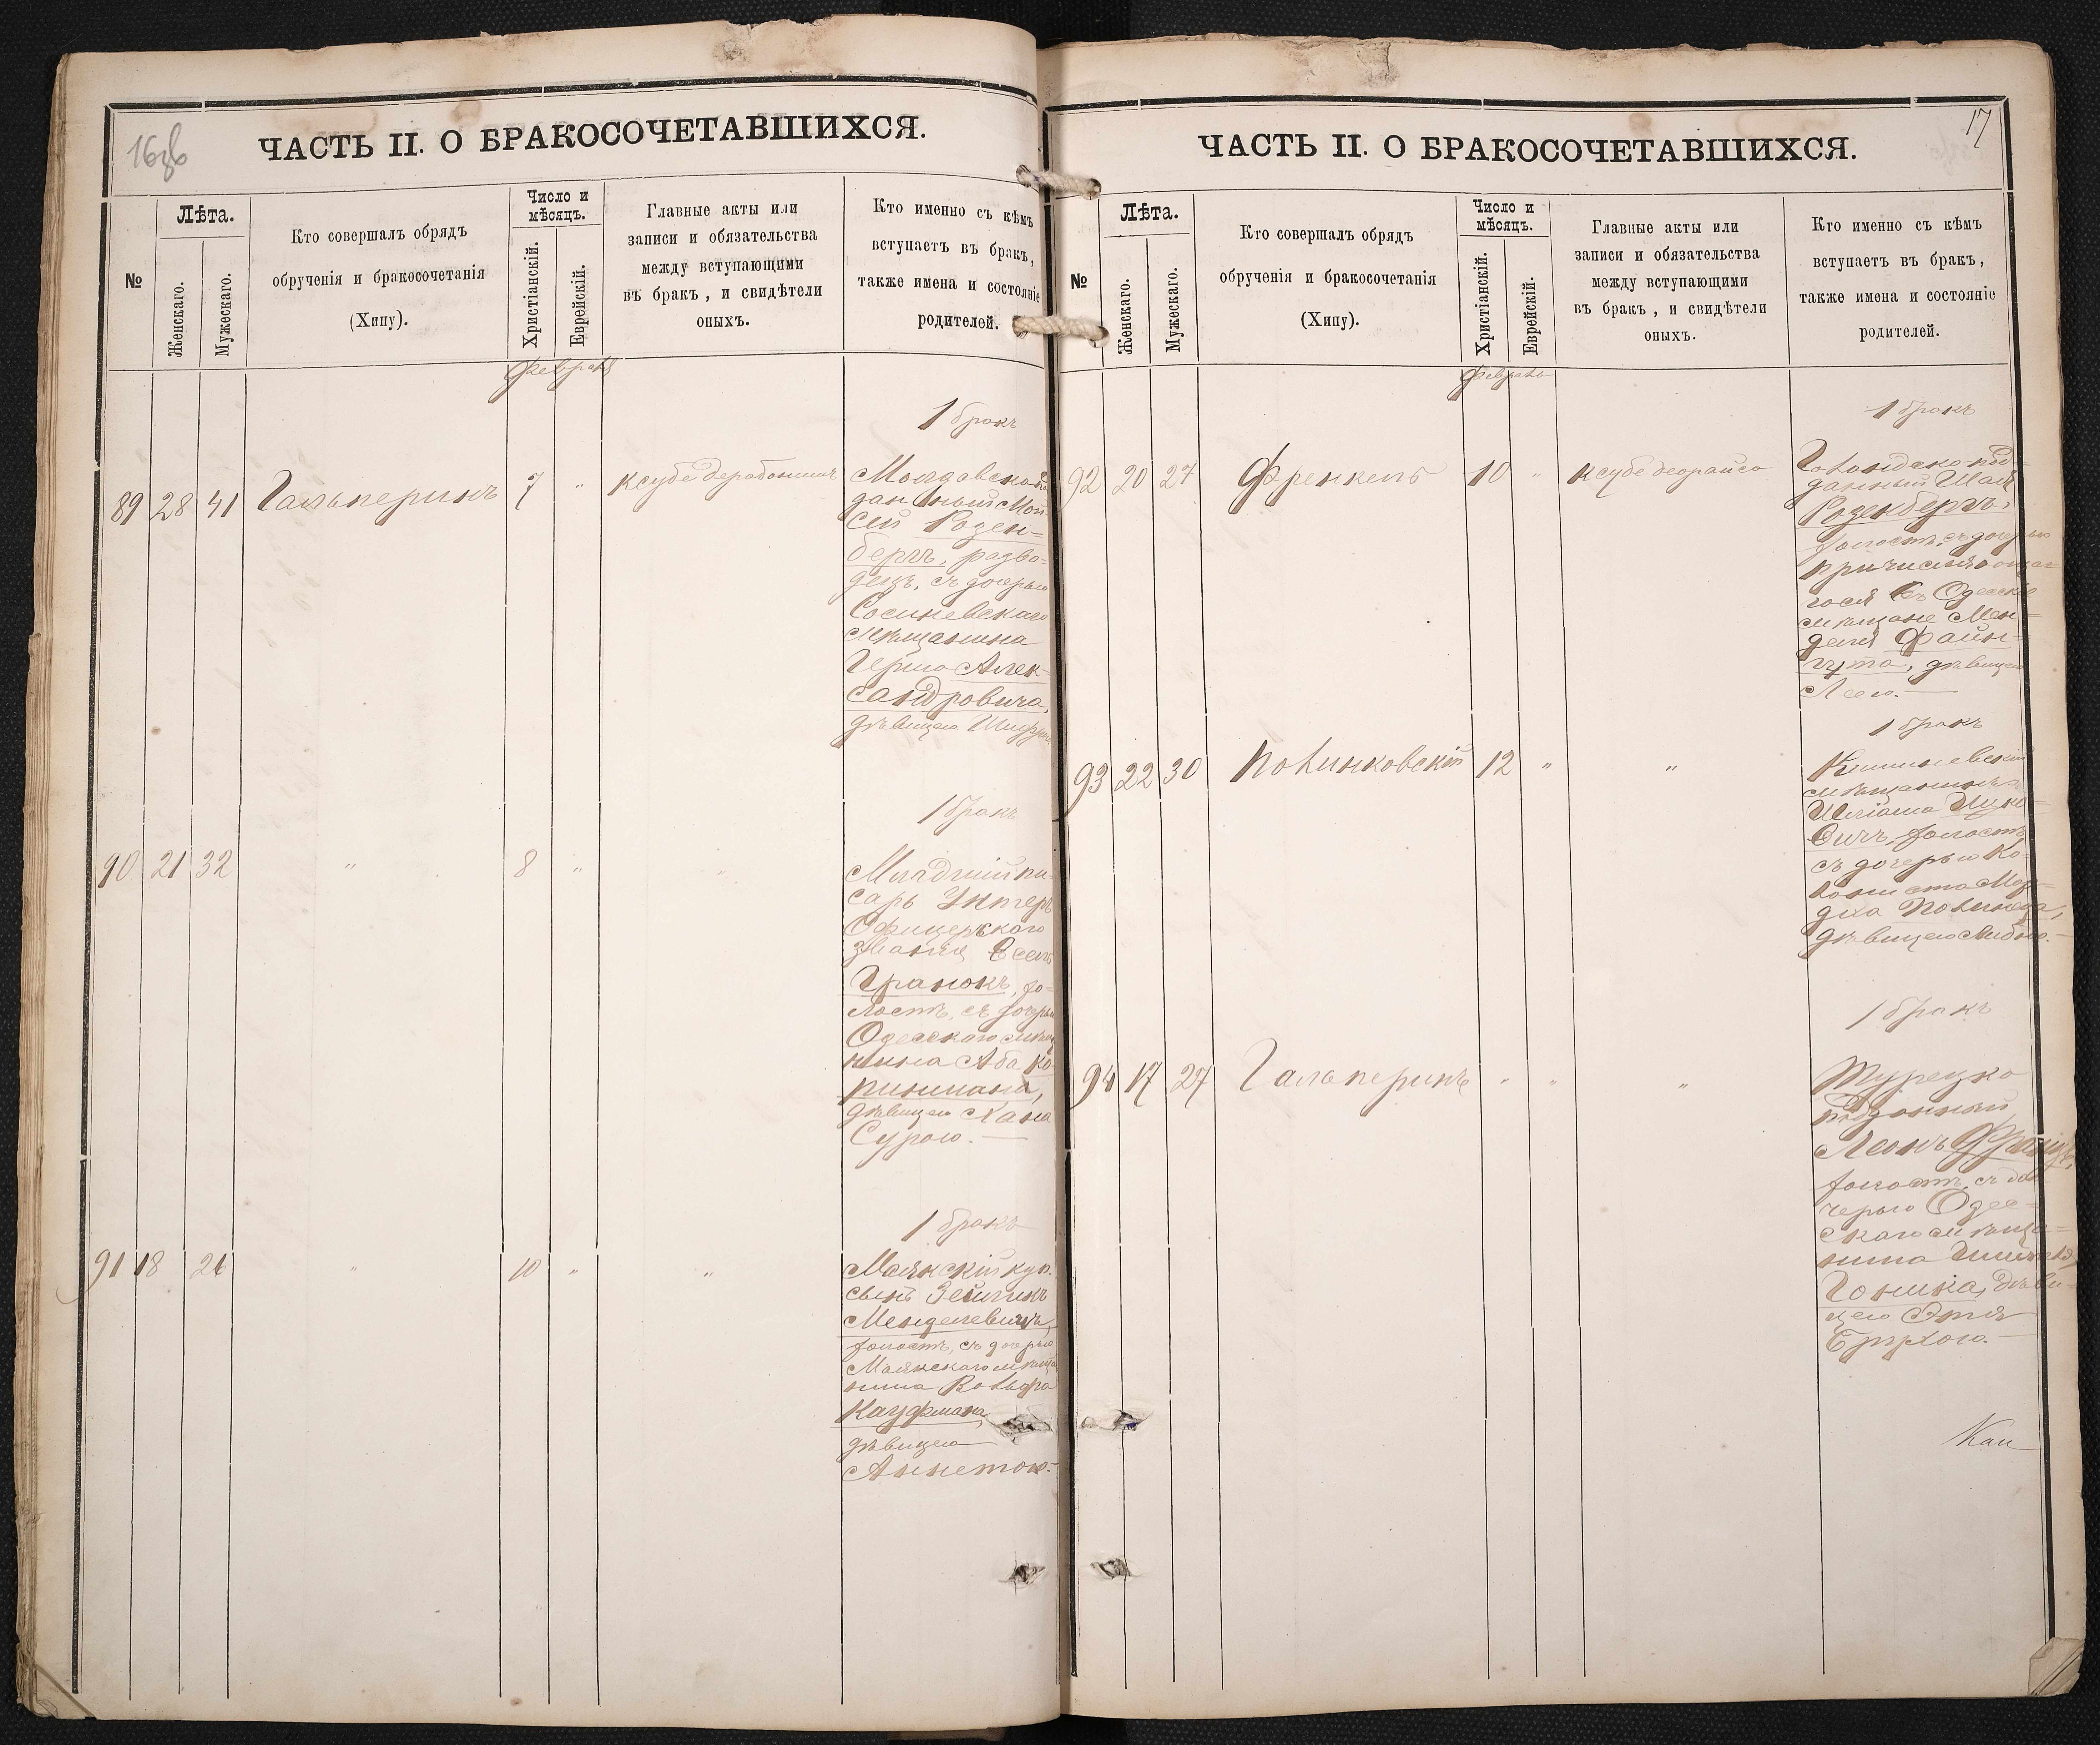 16об
ЧАСТЬ II. О БРАКОСОЧЕТАВШИХСЯ.
№
Лѣта.
Женскаго.
Мужескаго.
Кто совершалъ обрядъ
обрученія и бракосочетанія
(Хипу).
Число и
мѣсяцъ.
Христіанскій.
Еврейскій.
Главные акты или
записи и обязательства
между вступающими
въ бракъ, и свидѣтели
оныхъ.
Кто именно съ кѣмъ
вступаетъ въ бракъ,
также имена и состояніе
родителей.
февраль
1 бракъ
89 28 41 Гальперинъ 7 "
Молдавско-по
данный Мои
сей Розен-
бергъ, разво-
децъ, съ дочерью
мѣщанина
Герша Алек-
сандровича,
дѣвицею
1 бракъ
90 21 32 " 8 " "
Младшій пи-
сарь Унтеръ
Офицерскаго
званія
Гранокъ, хо-
лостъ, съ дочерью
Одесскаго мѣща
нина Аба Ко-
ринмана,
дѣвицею Хана
Сурою.
1 бракъ
91 18 21 " 10 " "
Маякскій куп.
сынъ Зейликъ
Менделевичъ,
холостъ, съ дочерью
Маякскаго мѣща
нина Вольфа
Кауфмана,
дѣвицею
Аннетою.
17
ЧАСТЬ II. О БРАКОСОЧЕТАВШИХСЯ.
№
Лѣта.
Женскаго.
Мужескаго.
Кто совершалъ обрядъ
обрученія и бракосочетанія
(Хипу).
Число и
мѣсяцъ.
Христіанскій.
Еврейскій.
Главные акты или
записи и обязательства
между вступающими
въ бракъ, и свидѣтели
оныхъ.
Кто именно съ кѣмъ
вступаетъ въ бракъ,
также имена и состояніе
родителей.
февраль
1 бракъ
92 20 27 Френкель 10 " ксубе деорайсо
Голандско-под
данный
Розенбергъ,
холостъ, съ дочерью
причисляющаг
гося въ Одесскіе
мѣщане Мен-
деля Файн-
гута, дѣвицею
Леею.
1 бракъ
93 22 30 Полинковскій 12 " "
Кишиневскій
мѣщанинъ
Шліома Ицко-
вичъ, холостъ,
съ дочерью Ко-
лониста Мор-
дка
дѣвицею Либою.
1 бракъ
94 17 27 Гальперинъ " " "
Турецко
подданный
Леонъ
холостъ, съ до
черью Одес-
скаго мѣща-
нина
Гоника, дѣви-
цею Этя
Брухою.